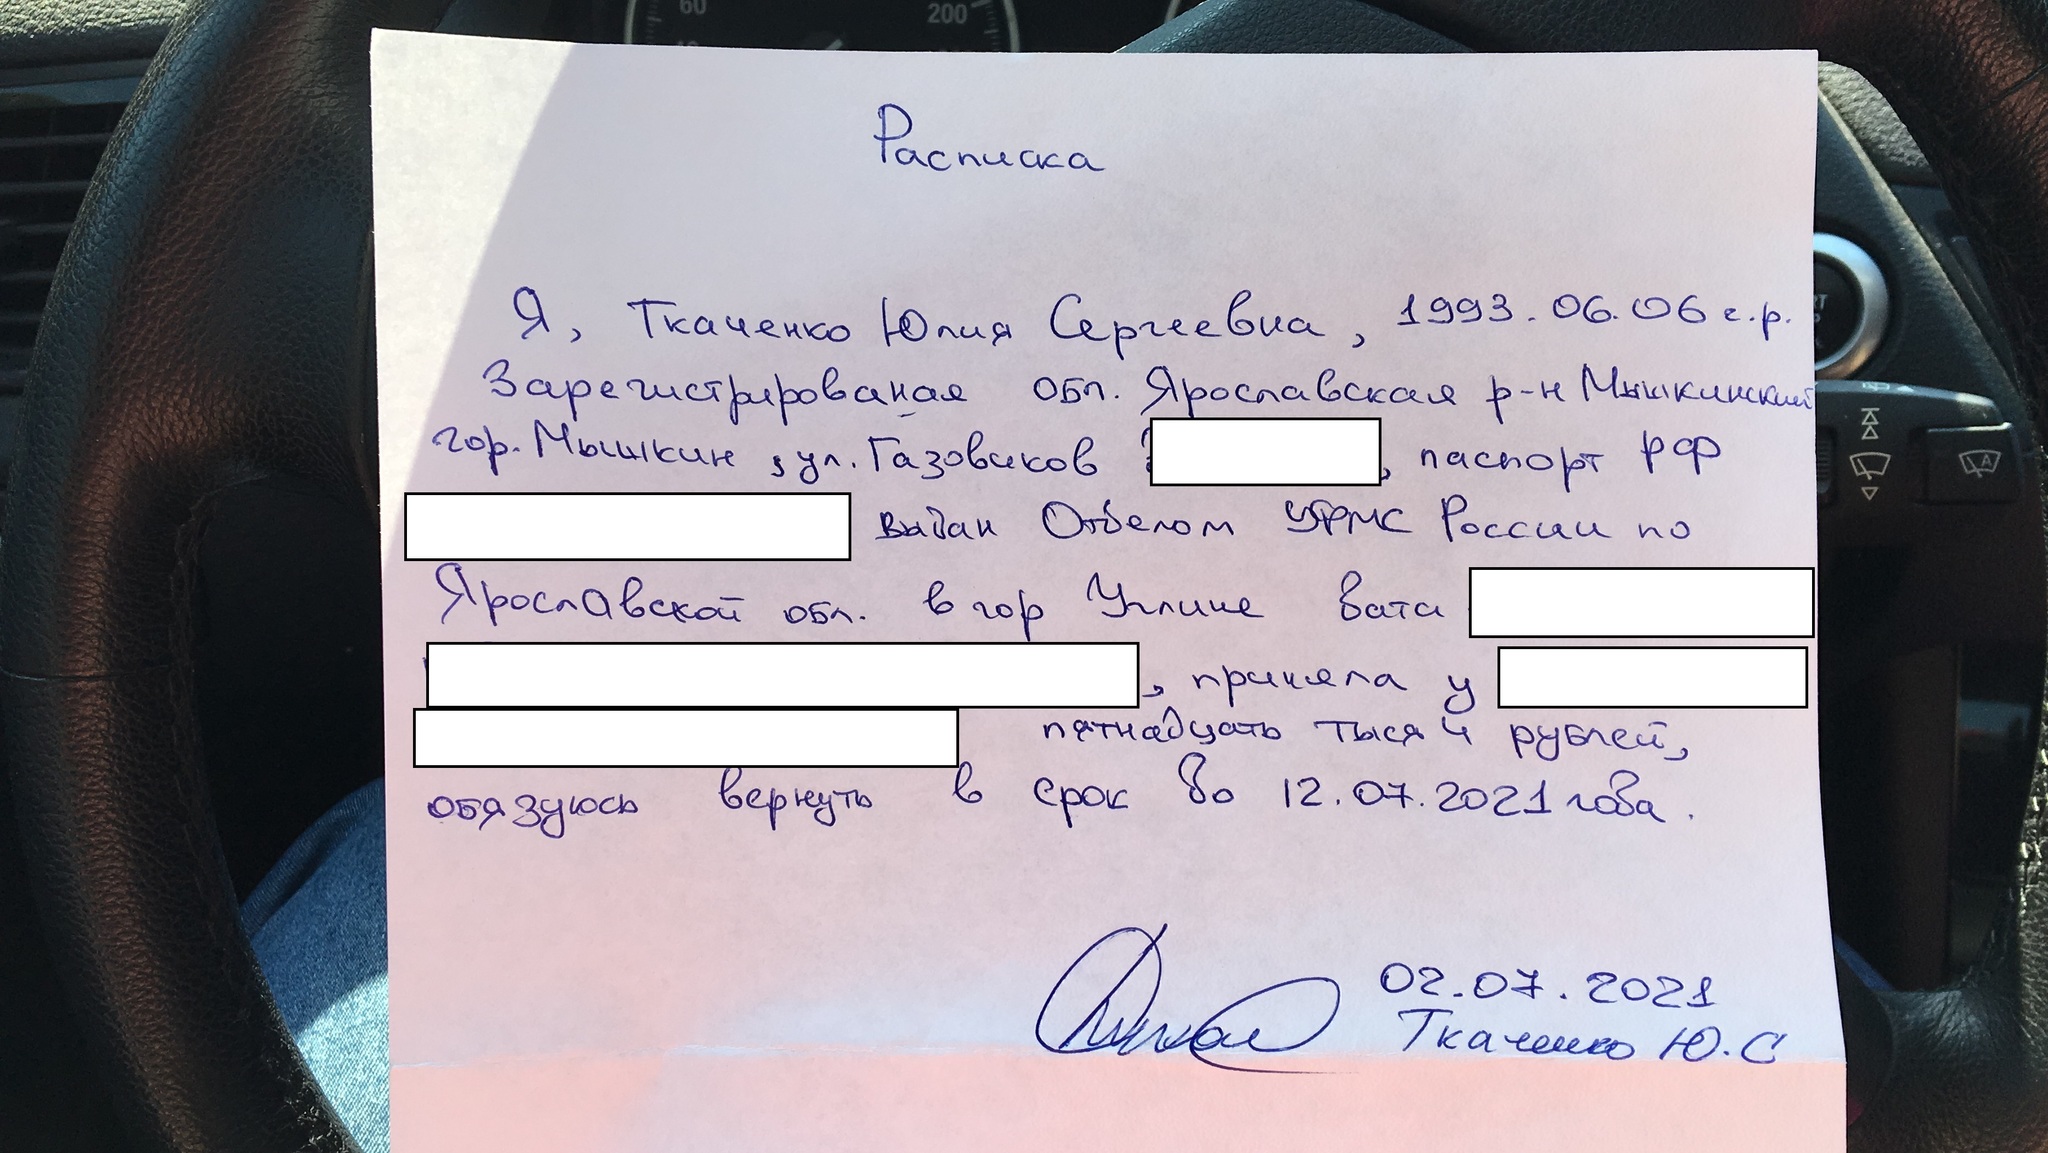 60
200
Расписка
Я, Ткаченко Юлия Сергеевна, 1993.06.06 г.р.
Зарегистрированая обл. Ярославская р-н Мышкинский
гор. Мышкин, ул. Газовиков , паспорт РФ
выдан Отделом УФМС России по
Ярославской обл. в гор Угличе дата
, приняла у
пятнадцать тысяч рублей,
обязуюсь вернуть в срок до 12.07.2021 года.
02.07.2021
Ткаченко Ю.С